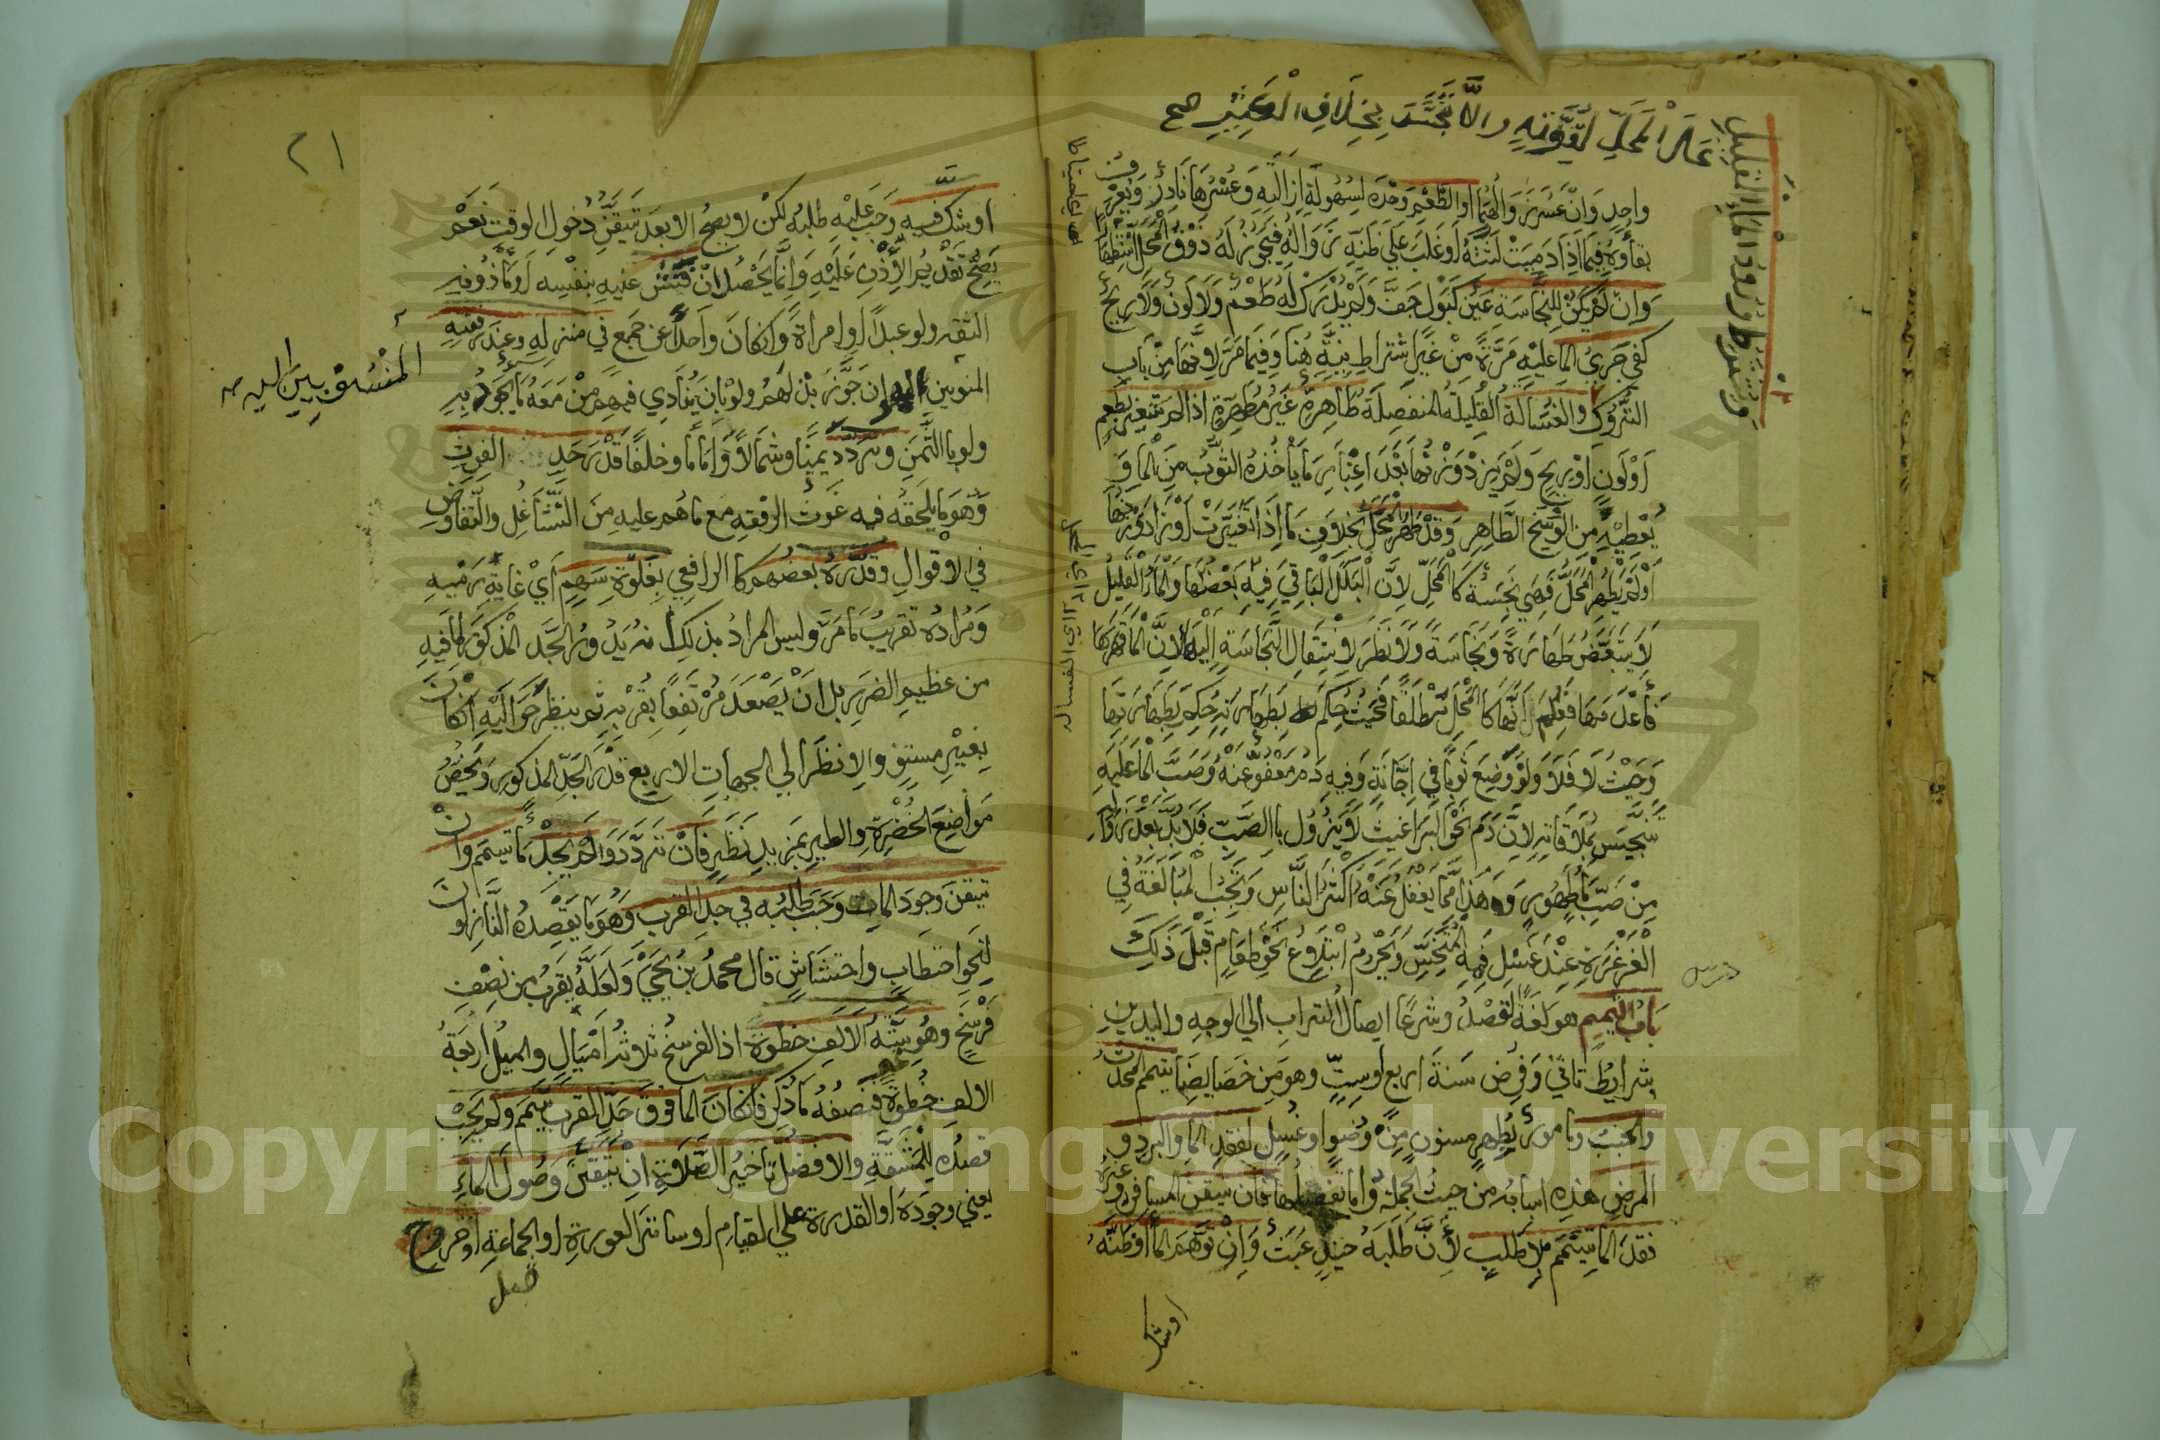 ويشترط ورود الماء القليل
على المحل لقوته والا تنجس بخلاف الكثير صح
واحد وان عسر زوالهما او الطعم وحده لسهولة ازالته وعسرها نادر ويعرف
بقاؤه فيما اذا دميت لثته او غلب على ظنه زواله فيجوز له ذوق المحل استظهارا
وان لم يكن للنجاسة عين كبول جف ولم يدرك له طعم ولا لون ولا ريح
كفى جري الماء عليه مرة من غير اشتراط نية هنا وفيما مر لانها من باب
التروك والغسالة القليلة المنفصلة طاهرة غير مطهرة اذا لم تتغير بطعم
او لون او ريح ولم يزد وزنها بعد اعتبار ما ياخذه الثوب من الماء و
يعطيه من الوسخ الطاهر وقد طهر المحل بخلاف ما اذا تغيرت او زاد وزنها
او لم يطهر المحل فهي نجسة كالمحل لان البلل الباقي فيه بعضها والماء القليل
لا يتبعض طهارة ونجاسة ولا نظر لانتقال النجاسة اليها لان الماء قهرها
فاعدمها فعلم انها كالمحل مطلقا فحيث حكم بطهارته حكم بطهارتها
وحيث لا فلا ولو وضع ثوبا في اجانة وفيه دم معفو عنه وصب الماء عليه
تنجس بملاقاته لان دم نحو البراغيث لا يزول بالصب فلا بد بعد زواله
من صب ماء طهور وهذا مما يغفل عنه اكثر الناس وتجب المبالغة في
الغرغرة عند غسل فمه المتنجس ويحرم ابتلاع نحو طعام قبل ذلك
باب التيمم هو لغة القصد وشرعا ايصال التراب الى الوجه واليدين
بشرايط تاتي وفرض سنة اربع او ست وهو من خصايصنا يتيمم المحدث
والجنب ومامور بطهر مسنون من وضوء او غسل لفقد الماء والبرد و
المرض هذه اسبابه من حيث الجملة واما تفصيلها فان تيقن المسافر وغيره
فقد الماء تيمم بلا طلب لان طلبه حينئذ عبث وان توهم الماء او ظنه
او شك
درس
اي الغسالة
اي المحل
٢١
او شك فيه وجب عليه طلبه لكن لا يصح الا بعد تيقن دخول الوقت نعم
يصح تقديم الاذن عليه وانما يحصل ان فتش عنه بنفسه او ماذونه
الثقة ولو عبدا او امراة وان كان واحدا عن جمع في منزله وعند رفقته
المنسوبين اليه ان جوز بذلهم ولو بان ينادي فيهم من معه ماء يجود به
المنسوبين اليه صح
ولو بالثمن وتردد يمينا وشمالا واماما وخلفا قدر حد الغوث
وهو ما يلحقه فيه غوث الرفقة مع ما هم عليه من التشاغل والتفاوض
في الاقوال وقدره بعضهم كالرافعي بغلوة سهم اي غاية رميه
ومراده تقريب ما مر وليس المراد بذلك انه يدور الحد المذكور لما فيه
من عظيم الضرر بل ان يصعد مرتفعا بقربه ثم ينظر حواليه ان كان
بغير مستو والا نظر الى الجهات الاربع قدر الحد المذكور ويخص
مواضع الخضرة والطير بمزيد نظر فان تردد ولم يجد ماء تيمم وان
تيقن وجود الماء وجب طلبه في حد القرب وهو ما يقصده النازلون
لنحو احتطاب واحتشاش قال محمد بن يحيى ولعله يقرب من نصف
فرسخ وهو ستة الاف خطوة اذ الفرسخ ثلاثة اميال والميل اربعة
الاف خطوة فنصفه ما ذكر فان كان الماء فوق حد القرب تيمم ولم يجب
قصده للمشقة والافضل تاخير الصلاة ان تيقن وصول الماء
يعني وجوده او القدرة على القيام او ساتر العورة او الجماعة او خروج
فعل